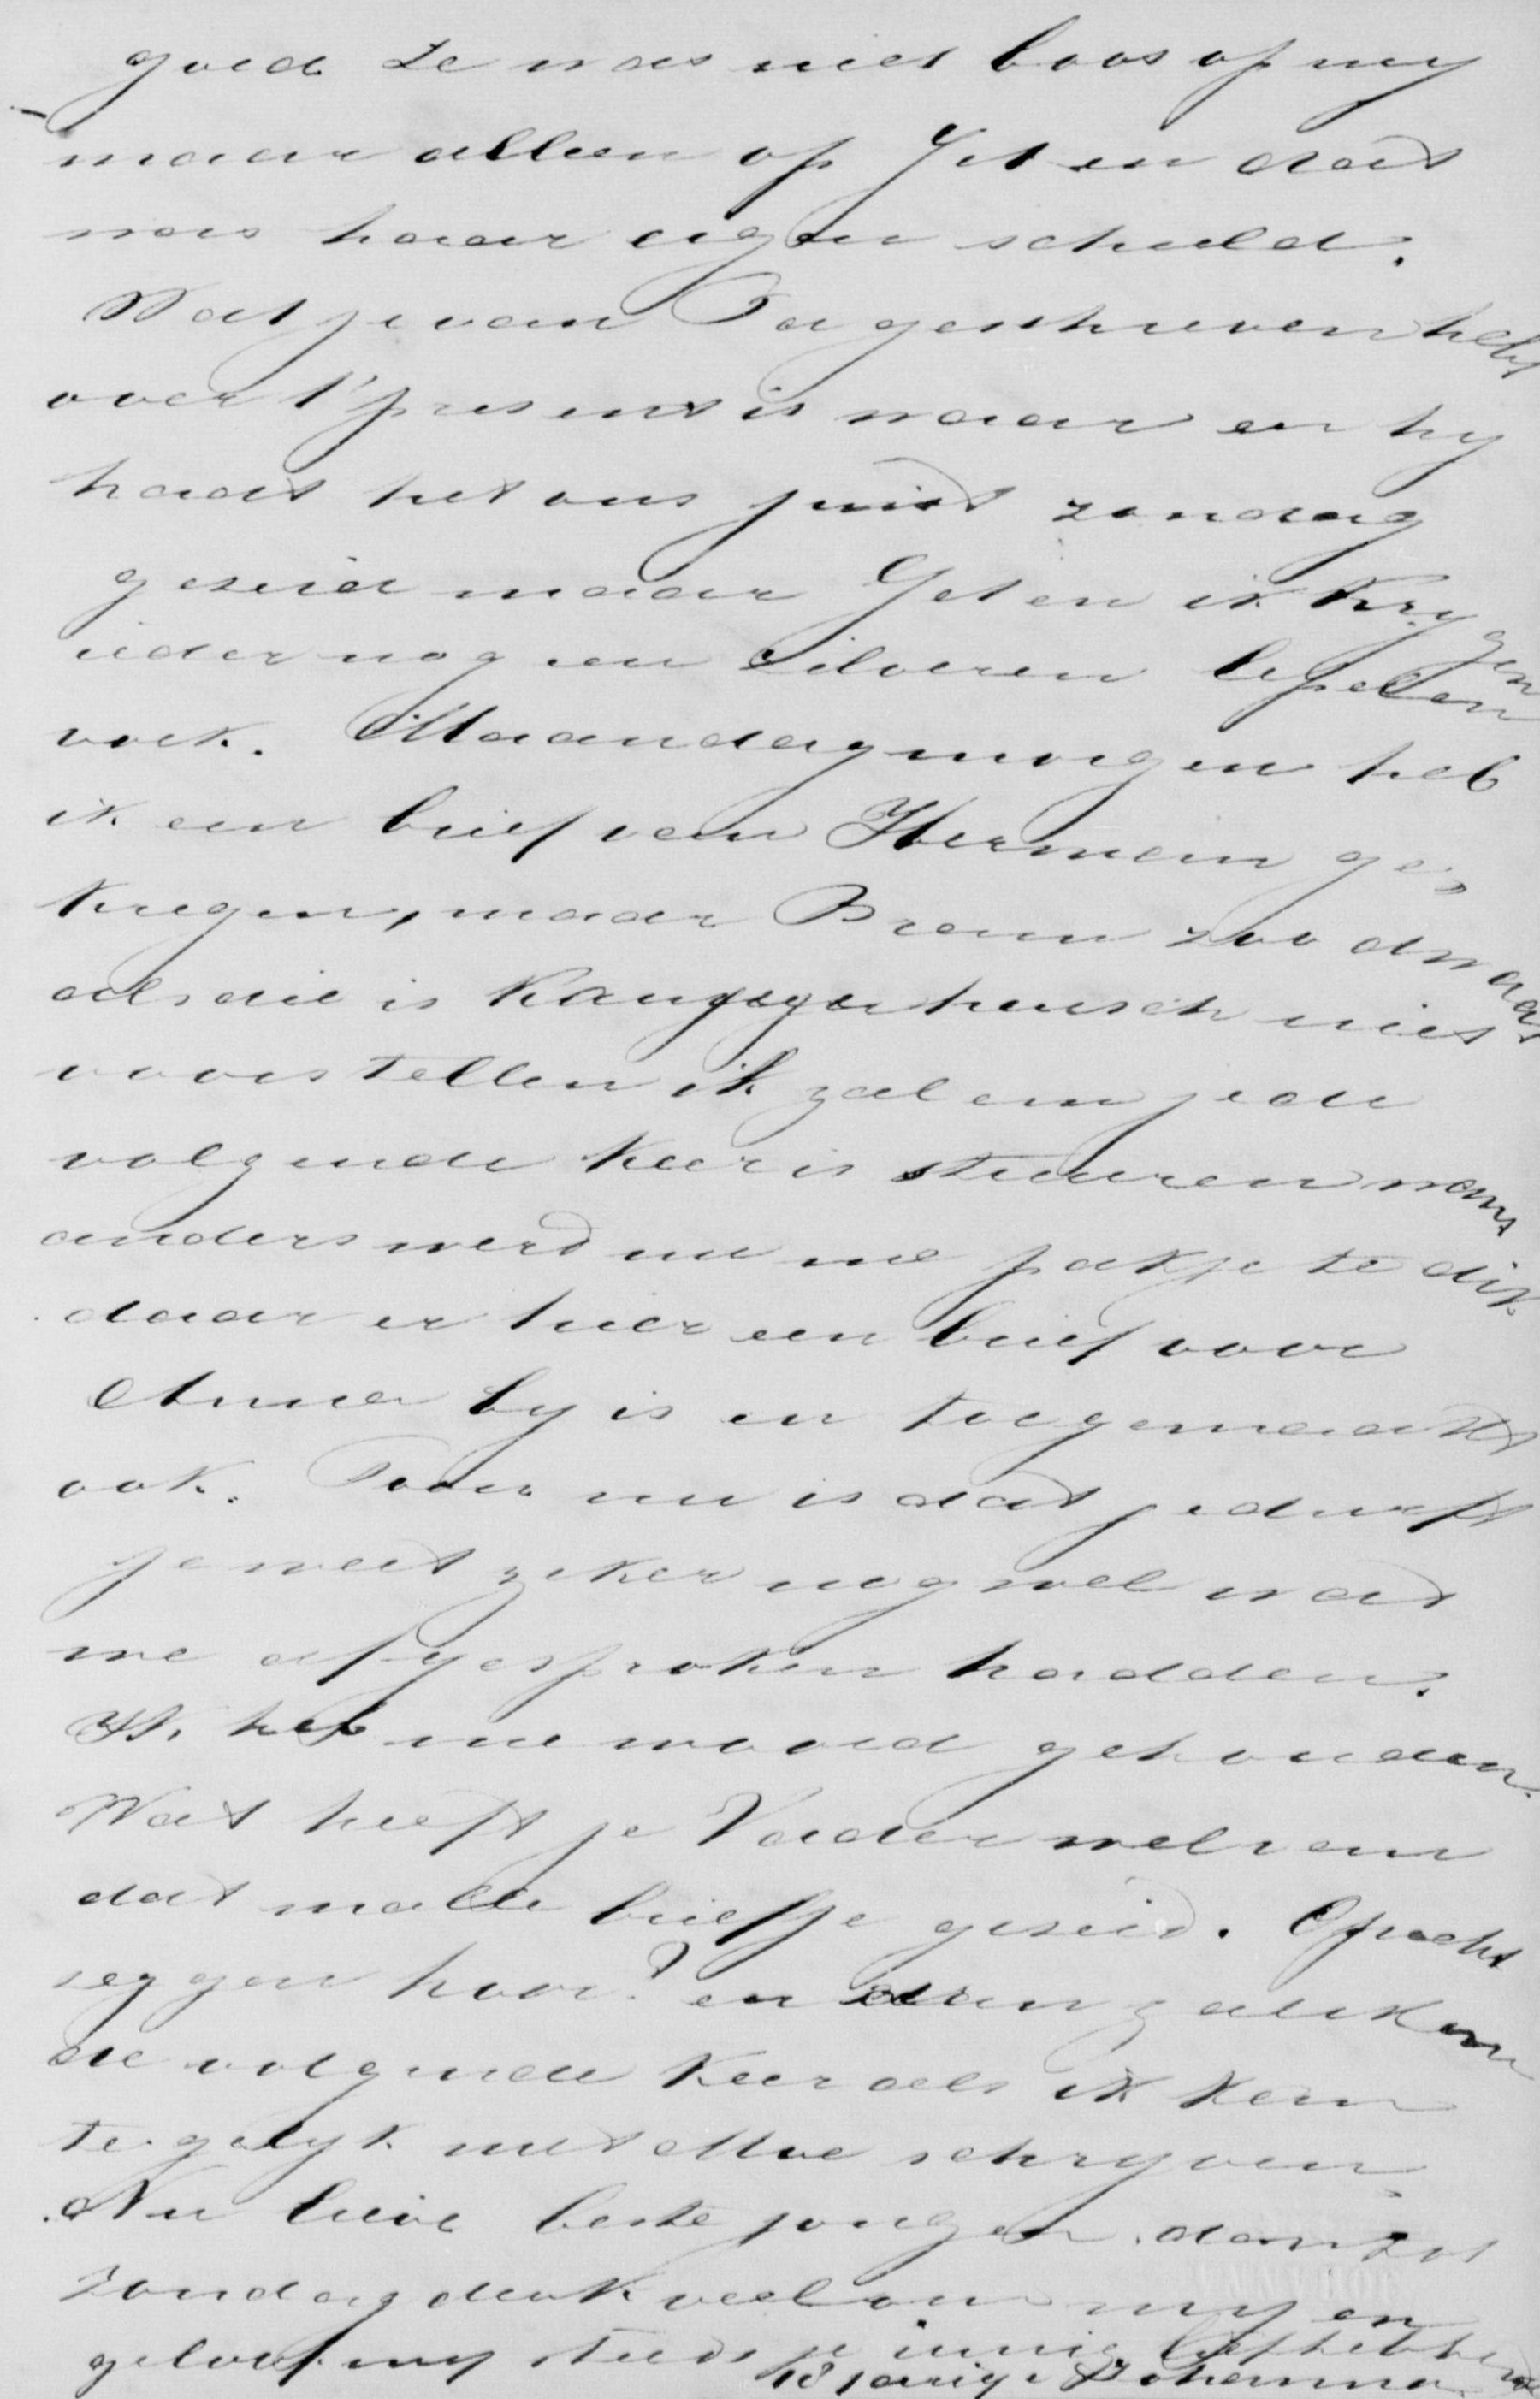 goed ze was niet boos op my
maar alleen op Jet en dat
was haar eigen schuld.
Wat je van Pa geschreven hebt
over 't present is waar en hy
hadt het ons juist zondag
gezeid maar Jet en ik krygen
ieder nog een zilveren lepel en
vork. Maandagmorgen heb
ik een brief van Hermein ge-
kregen, maar Bram zoo dwaas
als die is kan je je heusch niet
voorstellen ik zal em je de
volgende keer is sturen want
anders werd nu me pakje te dik
daar er hier een brief voor
Anna by is en toegemaakt
ook. Toen nu is dat je durft
je weet zeker nog wel wat
we afgesproken hadden.
Ik heb me woord gehouden.
Wat heeft je Vader wel van
dat malle briefje gezeid. Oprecht
zeggen hoor! en dan zal ik em
de volgende keer als ik kan
te gelyk met Moe schryven.
Nu lieve beste jongen dan tot
zondag denk veel om my en
geloof my steeds je innig liefhebbende
18 jarige Johanna